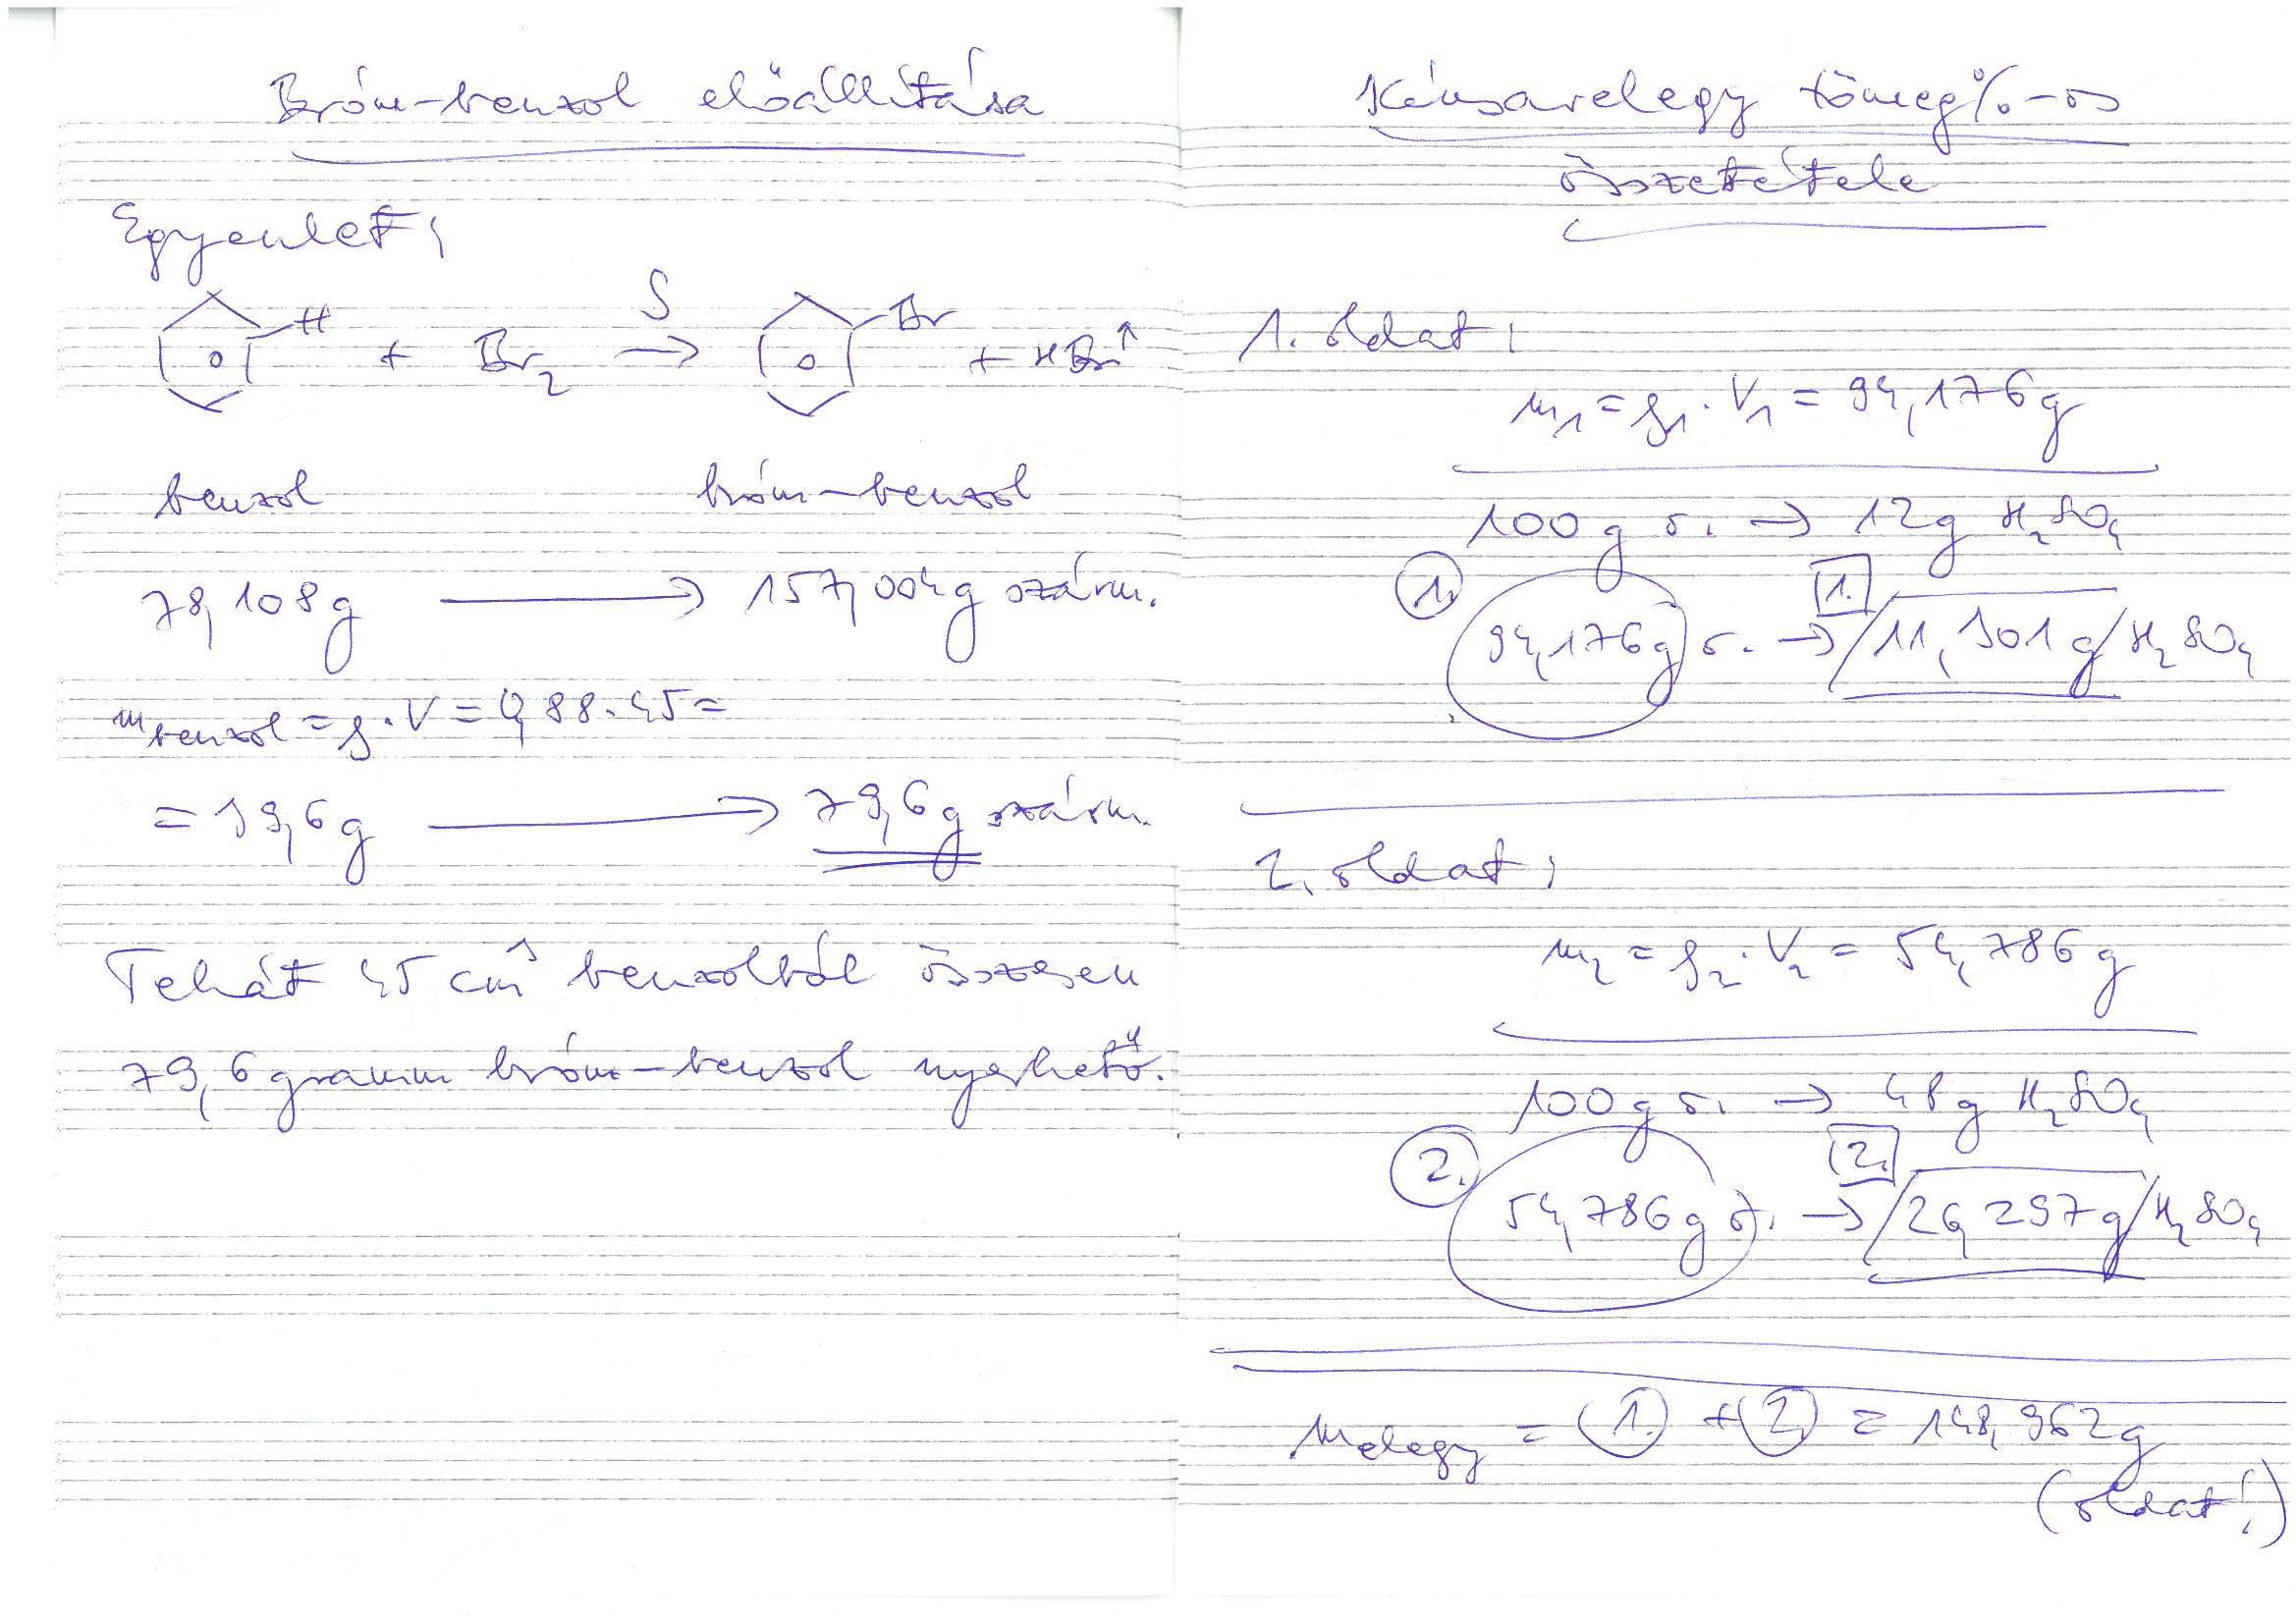 Bróm-benzol előállítása
Egyenlet:
H + Br2 → Br + HBr↑
benzol bróm-benzol
78,108g → 157,004g szárm.
mbenzol = ρ·V = 0,88·45 =
= 39,6g → 79,6g szárm.
Tehát 45 cm³ benzolból összesen
79,6 gramm bróm-benzol nyerhető.
Kénsavelegy tömeg%-os
összetétele
1. oldat:
m1 = ρ1·V1 = 94,176g
100g o. → 12g H2SO4
1. 1.
94,176g o. → 11,301g H2SO4
2. oldat:
m2 = ρ2·V2 = 54,786g
100g o. → 48g H2SO4
2. 2.
54,786g o. → 26,297g H2SO4
melegy = 1. + 2. = 148,962g
(oldat!)